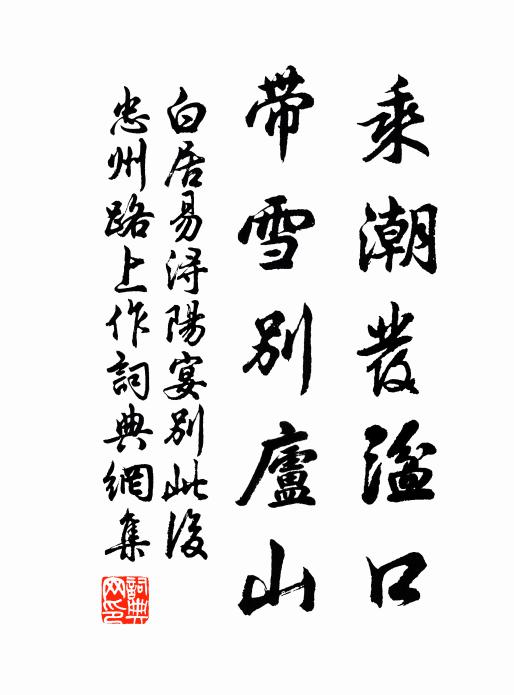 乘潮發湓口
帶雪別廬山
白居易潯陽宴別此後
忠州路上作詞典網集